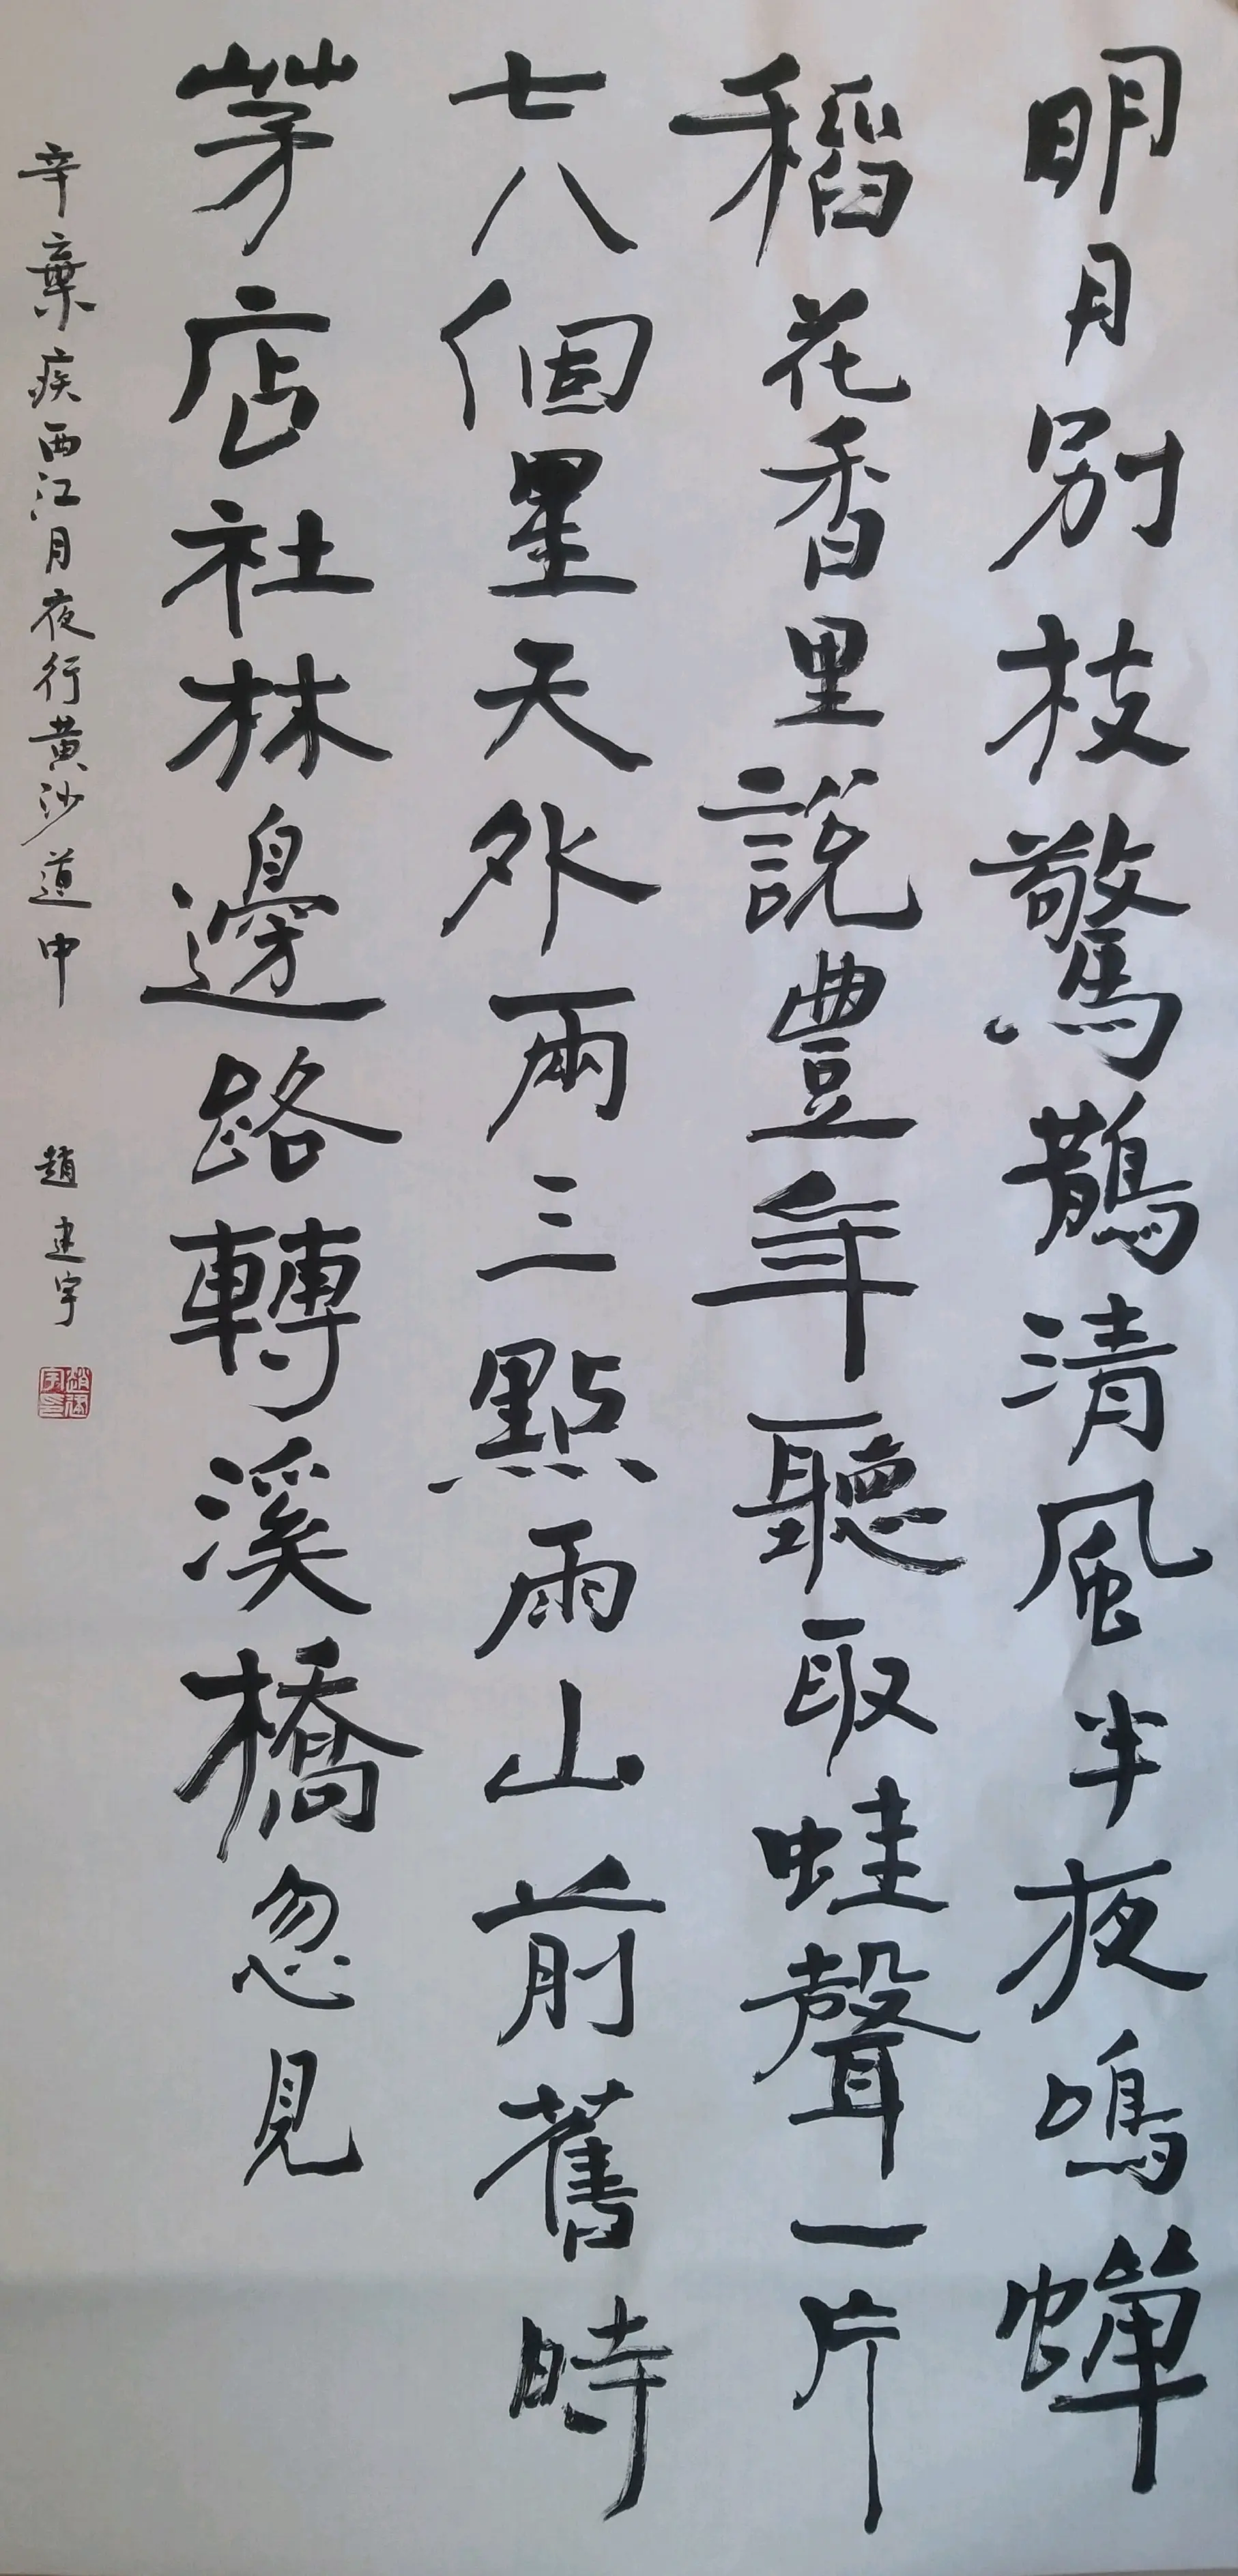 明月别枝驚鵲清風半夜鳴蟬
稻花香里說豐年聽取蛙聲一片
七八個星天外兩三點雨山前舊時
茅店社林邊路轉溪橋忽見
辛棄疾西江月夜行黄沙道中
趙建宇